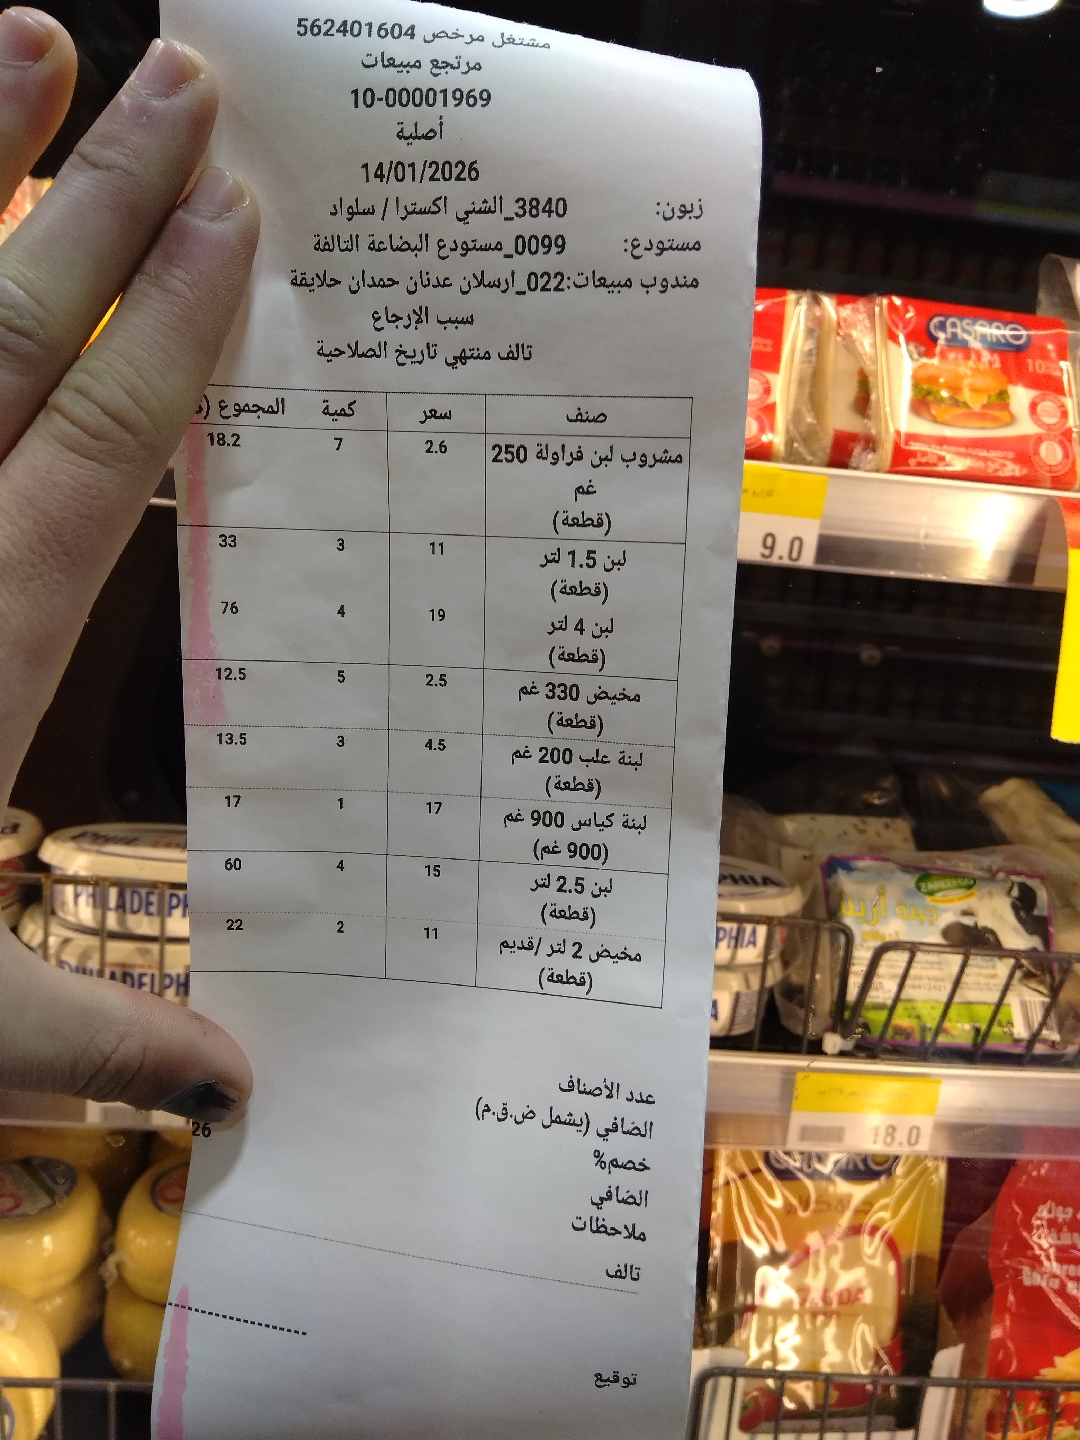 مشتغل مرخص 562401604
مرتجع مبيعات
10-00001969
أصلية
14/01/2026
زبون: 3840_الشني اكسترا / سلواد
مستودع: 0099_مستودع البضاعة التالفة
مندوب مبيعات:022_ارسلان عدنان حمدان حلايقة
سبب الإرجاع
تالف منتهي تاريخ الصلاحية
صنف سعر كمية المجموع
مشروب لبن فراولة 250 2.6 7 18.2
غم
(قطعة)
لبن 1.5 لتر 11 3 33
(قطعة)
لبن 4 لتر 19 4 76
(قطعة)
مخيض 330 غم 2.5 5 12.5
(قطعة)
لبنة علب 200 غم 4.5 3 13.5
(قطعة)
لبنة كياس 900 غم 17 1 17
(900 غم)
لبن 2.5 لتر 15 4 60
(قطعة)
مخيض 2 لتر /قديم 11 2 22
(قطعة)
عدد الأصناف
الصافي (يشمل ض.ق.م) 26
خصم%
الصافي
ملاحظات
تالف
توقيع
CASARO
10
9.0
PHILADELPH
PHIA
ZAREECO
جبنة
18.0
CASARO